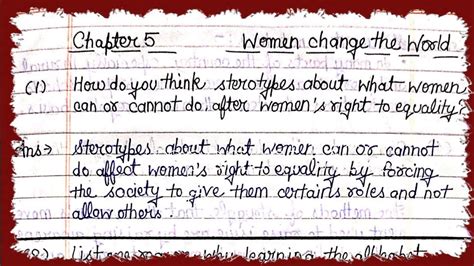 Chapter 5 Women change the World
(1) How do you think sterotypes about what women
can or cannot do after women's right to equality?
Ans⇒ sterotypes about what women can or cannot
do affect women's right to equality by forcing
the society to give them certains roles and not
allow others.
List one reason why learning the alphabet